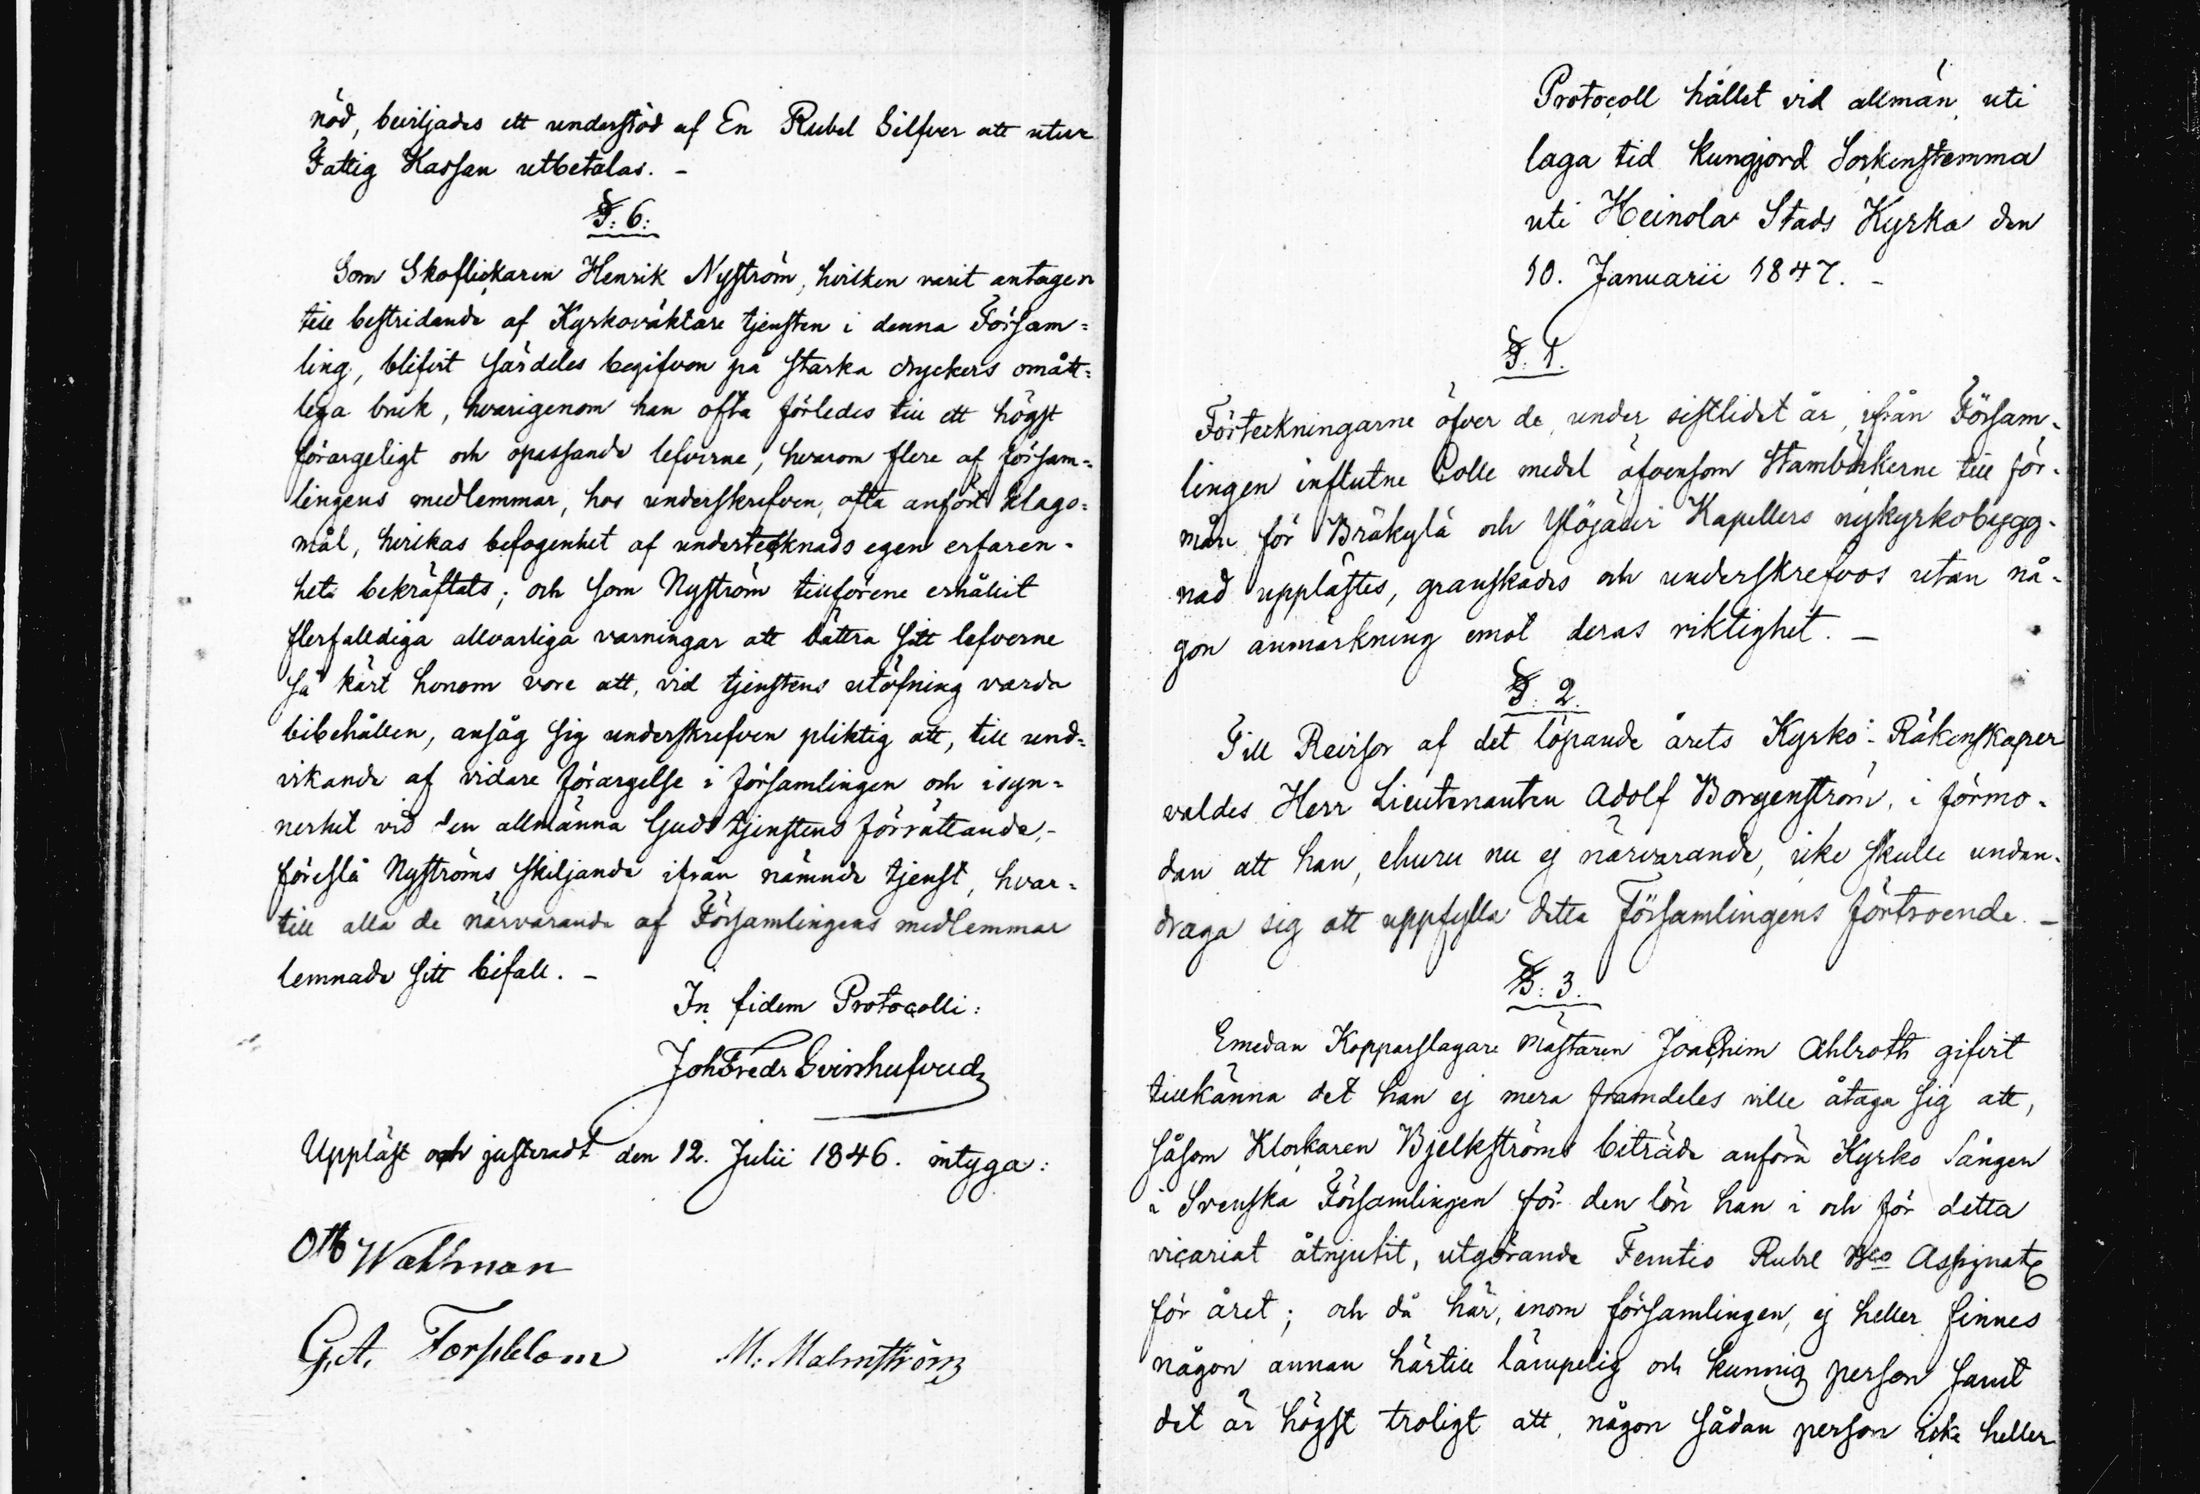 nöd, beviljades ett understöd af En Rubel Silfver att utur
Fattig Kassan utbetalas. -
§. 6:
Som Skoflickaren Henrik Nyström, hvilken varit antagen
till bestridande af Kyrkoväktare tjensten i denna Försam=
ling, blifvit särdeles begifven på starka dryckers omått=
liga bruk, hvarigenom han ofta förledes till ett högst
förargeligt och opassande lefverne, hvarom flere af försam=
lingens medlemmar, hos underskrefven, ofta anfört klago=
mål, hvilkas befogenhet af undertecknads egen erfaren-
het bekräftats; och som Nyström tillförene erhållit
flerfalldiga allvarliga varningar att bättra sitt lefverne
så kärt honom vore att, vid tjenstens utöfning varda
bibehållen, ansåg sig underskrefven pliktig att, till und=
vikande af vidare förargelse i församlingen och isyn=
nerhet vid den allmänna Gudstjenstens förrättande, -
föreslå Nyströms skiljande ifrån nämnde tjenst, hvar=
till alla de närvarande af Församlingens medlemmar
lemnade sitt bifall. -
In fidem Protocolli:
Joh Fredr Svinhufvud
Uppläst och justeradt den 12. Julii 1846. intyga:
Otto Wahlman
G. A. Forssblom M. Malmström
Protocoll hållet vid allmän, uti
laga tid kungjord Sockenstemma
uti Heinola Stads Kyrka den
10. Januarii 1847. -
§. 1.
Förteckningarne öfver de, under sistlidet år, ifrån Försam-
lingen influtne Colle medel äfvensom Stamböckerne till för-
mån för Bräkylä och Ylöjärvi Kapellers nykyrkobygg-
nad upplästes, granskades och underskrefvos utan nå-
gon anmärkning emot deras riktighet. -
§. 2.
Till Revisor af det löpande årets Kyrko-Räkenskaper
valdes Herr Lieutenanten Adolf Borgenström, i förmo-
dan att han, ehuru nu ej närvarande, icke skulle undan-
draga sig att uppfylla detta Församlingens förtroende. -
§. 3.
Emedan Kopparslagare Mästaren Joachim Ahlroth gifvit
tillkänna det han ej mera framdeles ville åtaga sig att,
såsom Klockaren Bjelkströms biträde anföra Kyrko Sången
i Svenska Församlingen för den lön han i och för detta
vicariat åtnjutit, utgörande Femtio Rubel Bco Assignat
för året; och då här, inom församlingen, ej heller finnes
någon annan härtill lämpelig och kunnig person samt
det är högst troligt att, någon sådan person icke heller